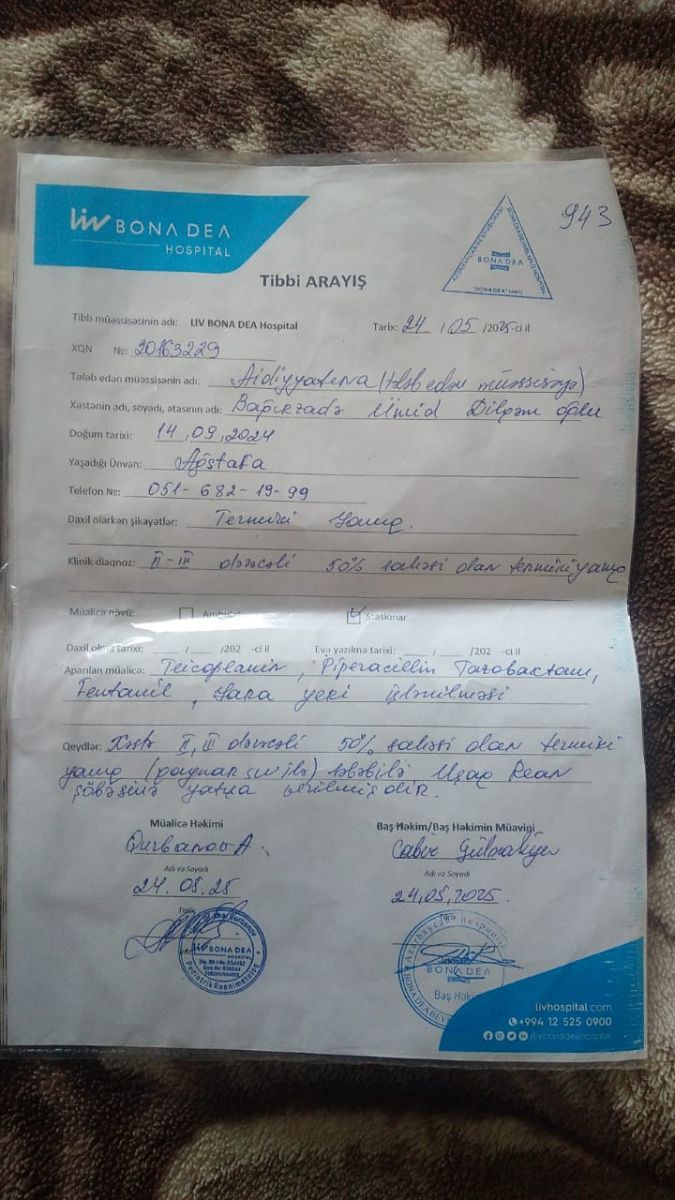 liv BONA DEA
HOSPITAL
BONA DEA
943
Tibbi ARAYIŞ
Tibb müəssisəsinin adı: LIV BONA DEA Hospital Tarix: 24 / 05 /2025-ci il
XQN №: 20163229
Tələb edən müəssisənin adı: Aidiyyatına (tələb edən müəssisəyə)
Xəstənin adı, soyadı, atasının adı: Bağırzadə Ümid oğlu
Doğum tarixi: 14,09,2024
Yaşadığı Ünvan: Ağstafa
Telefon №: 051-682-19-99
Daxil olarkən şikayətlər: Termiki Yanıq.
Klinik diaqnoz: II-III dərəcəli 50% sahəsi olan termiki yanıq
Müalicə növü: Stasionar
Daxil olma tarixi: ___ / ___ /202 -ci il Evə yazılma tarixi: ___ / ___ /202 -ci il
Aparılan müalicə: Teicoplanin, Piperacillin Tazobactam,
Fentanil, Yara yeri işlənilməsi
Qeydlər: Xəstə II, III dərəcəli 50% sahəsi olan termiki
yanıq (qaynar su ilə) səbəbilə Uşaq Rean
şöbəsinə verilmişdir.
Müalicə Həkimi Baş Həkim/Baş Həkimin Müavini
Qurbanov A.
Adı və Soyadı Adı və Soyadı
24.05.25 24,05,2025
Tarix
liv BONA DEA
HOSPITAL
Pediatrik Reanimatoloq
BONA DEA
livhospital.com
+994 12 525 0900
/livbonadeahospital